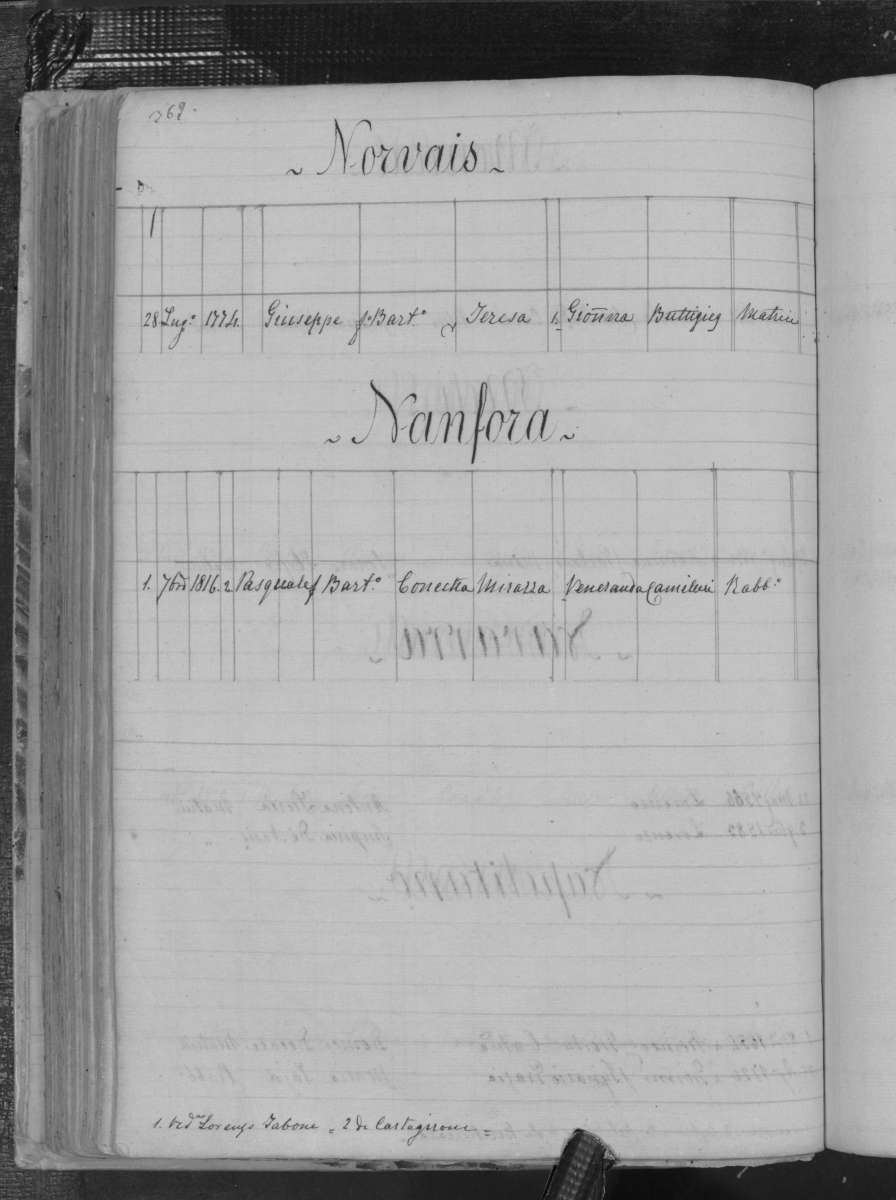 362.
~ Norvais ~
28 Lug.° 1774. Giuseppe f.° Bart.° & Teresa 1. Gioñna Buttigieg Matrice
~ Nanfora ~
1. 7bre 1816. 2 Pasquale f Bart.° Concetta Mirazza Veneranda Camilleri Rabb.°
1. ved.ª Lorenzo Tabone = 2 di Cartagirone =